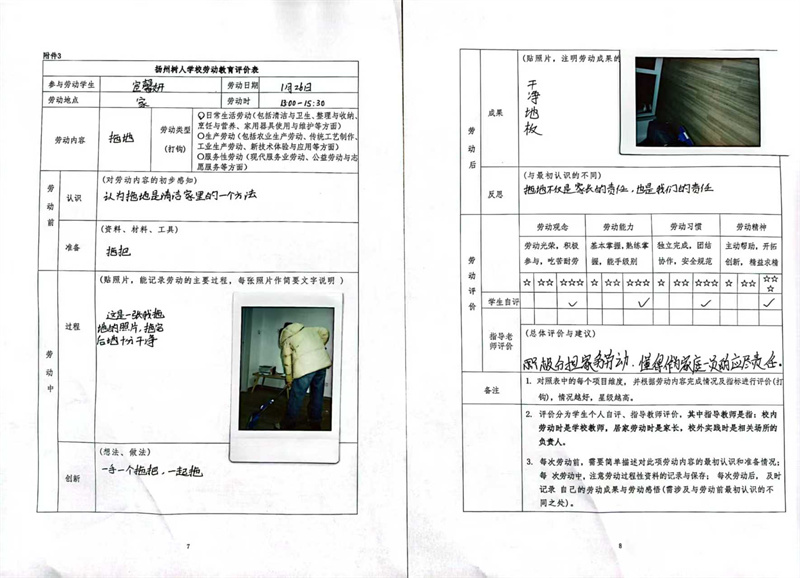 附件3
扬州树人学校劳动教育评价表
参与劳动学生
馨妍
劳动日期
1月26日
劳动地点
家
劳动时
13:00-15:30
劳动内容
拖地
劳动类型
(打钩)
日常生活劳动(包括清洁与卫生、整理与收纳、
烹饪与营养、家用器具使用与维护等方面)
○生产劳动(包括农业生产劳动、传统工艺制作、
工业生产劳动、新技术体验与应用等方面)
○服务性劳动(现代服务业劳动、公益劳动与志
愿服务等方面)
劳动前
认识
(对劳动内容的初步感知)
认为拖地是清洁家里的一个方法
准备
(资料、材料、工具)
拖把
劳动中
过程
(贴照片,能记录劳动的主要过程,每张照片作简要文字说明)
这是一张我拖
地的照片,拖完
后地十分干净
创新
(想法、做法)
一手一个拖把,一起拖
7
劳动后
成果
(贴照片,注明劳动成果的
干净地板
反思
(与最初认识的不同)
拖地不仅是家长的责任,也是我们的责任
劳动评价
劳动观念
劳动能力
劳动习惯
劳动精神
劳动光荣,积极
参与,吃苦耐劳
基本掌握,熟练掌
握,能手级别
独立完成,团结
协作,安全规范
主动帮助,开拓
创新,精益求精
☆ ☆☆ ☆☆☆ ☆ ☆☆ ☆☆☆ ☆ ☆☆ ☆☆☆ ☆ ☆☆ ☆☆☆
学生自评 ✓ ✓ ✓ ✓
指导老
师评价
(总体评价与建议)
积极分担家务劳动,懂得作为家庭一员的应尽责任。
备注
1. 对照表中的每个项目维度,并根据劳动内容完成情况及指标进行评价(打
钩),情况越好,星级越高。
2. 评价分为学生个人自评、指导教师评价,其中指导教师是指:校内
劳动时是学校教师,居家劳动时是家长,校外实践时是相关场所的
负责人。
3. 每次劳动前,需要简单描述对此项劳动内容的最初认识和准备情况;
每 次劳动中,注意劳动过程性资料的记录与保存; 每次劳动后, 及时
记录 自己的劳动成果与劳动感悟(需涉及与劳动前最初认识的不
同之处)。
8